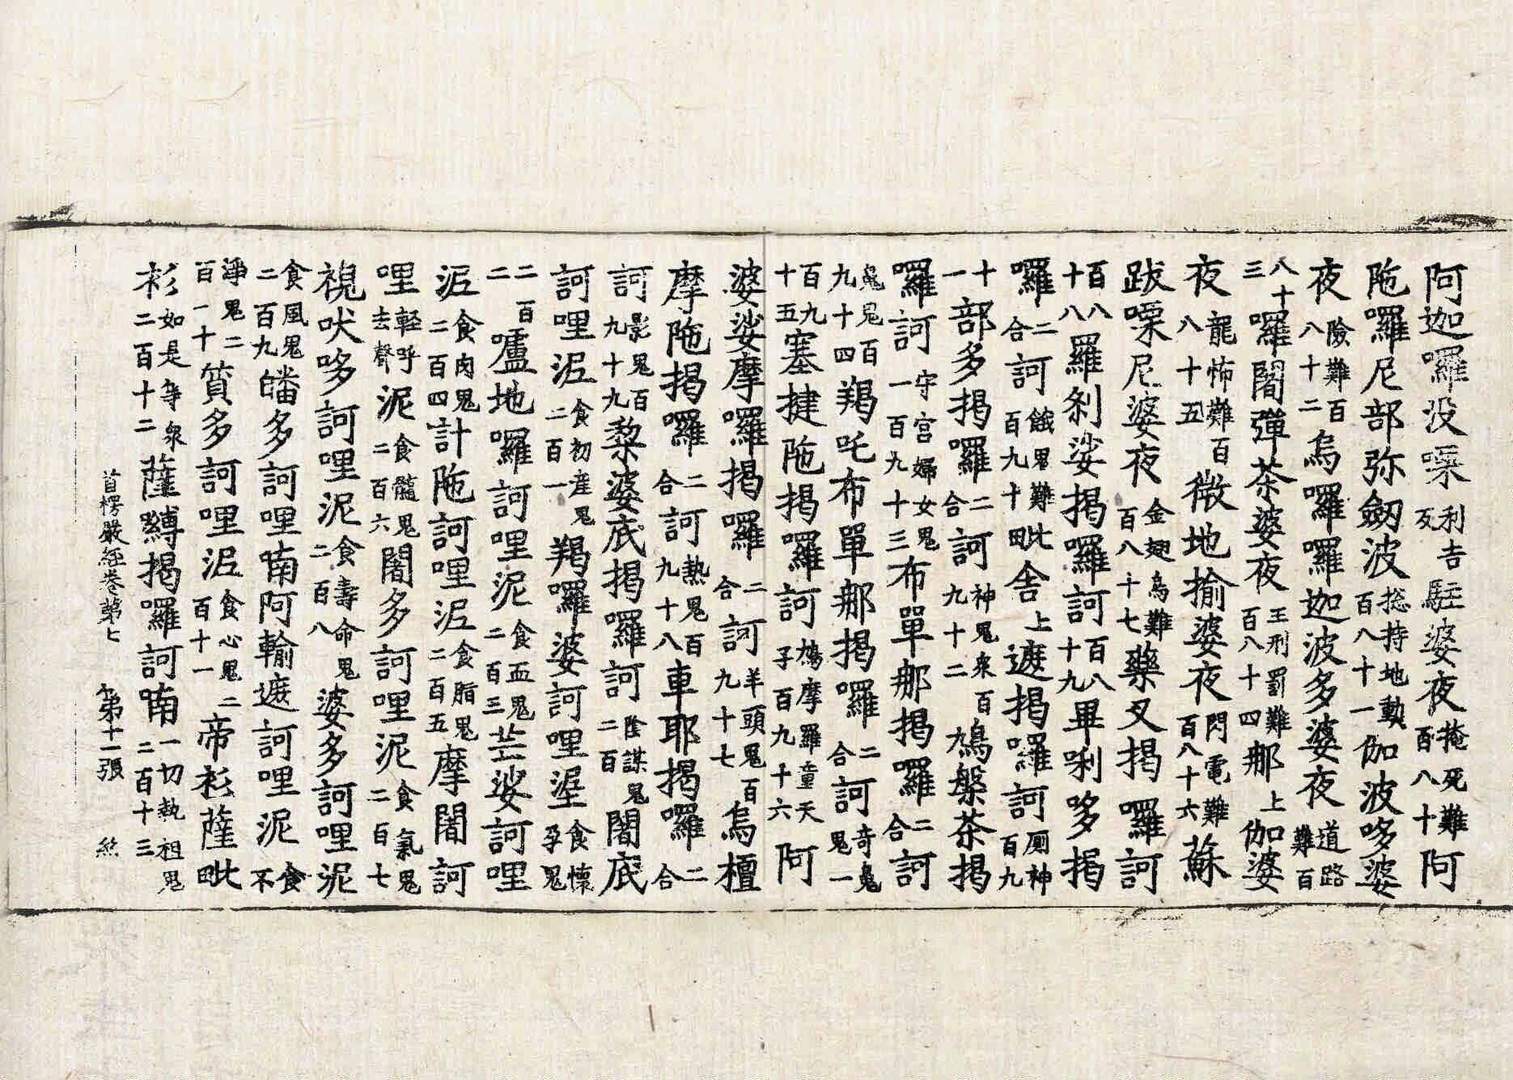 阿迦囉没㗚利吉反駐婆夜掩死難百八十阿
陁囉尼部弥劔波揔持地動百八十一伽波哆婆
夜險難百八十二烏囉囉迦波多婆夜道路難百
八十三囉闍彈茶婆夜王刑罰難百八十四那上伽婆
夜龍怖難百八十五微地揄婆夜閃電難百八十六蘇
跋㗚尼婆夜金翅鳥難百八十七藥叉揭囉訶
百八十八羅刹娑揭囉訶百八十九畢唎哆揭
囉二合訶餓鬼難百九十毗舍上遮揭囉訶厠神百九
十一部多揭囉二合訶神鬼衆百九十二鳩槃茶揭
囉訶守宫婦女鬼一百九十三布單那揭囉二合訶
鬼魁百九十四羯吒布單那揭囉二合訶奇鬼鬼一
百九十五塞揵陁揭囉訶鳩摩羅童天子百九十六阿
婆娑摩囉揭囉二合訶羊頭鬼百九十七烏檀
摩陁揭囉二合訶熱鬼百九十八車耶揭囉二合
訶影鬼百九十九黎婆底揭囉訶陰謀鬼二百闍底
訶哩泥食初産鬼二百一羯囉婆訶哩埿食懷孕鬼
二百二嚧地囉訶哩泥食血鬼二百三芒娑訶哩
泥食肉鬼二百四計陁訶哩泥食脂鬼二百五摩闍訶
哩輕呼去聲泥食髓鬼二百六闍多訶哩泥食氣鬼二百七
視吠哆訶哩泥食壽命鬼二百八婆多訶哩泥
食風鬼二百九皤多訶哩喃阿輸遮訶哩泥食不
淨鬼二百一十質多訶哩泥食心鬼二百十一帝衫薩毗
衫如是等衆二百十二薩縛揭囉訶喃一切熱祖鬼二百十三
首楞嚴經卷第七 第十一張